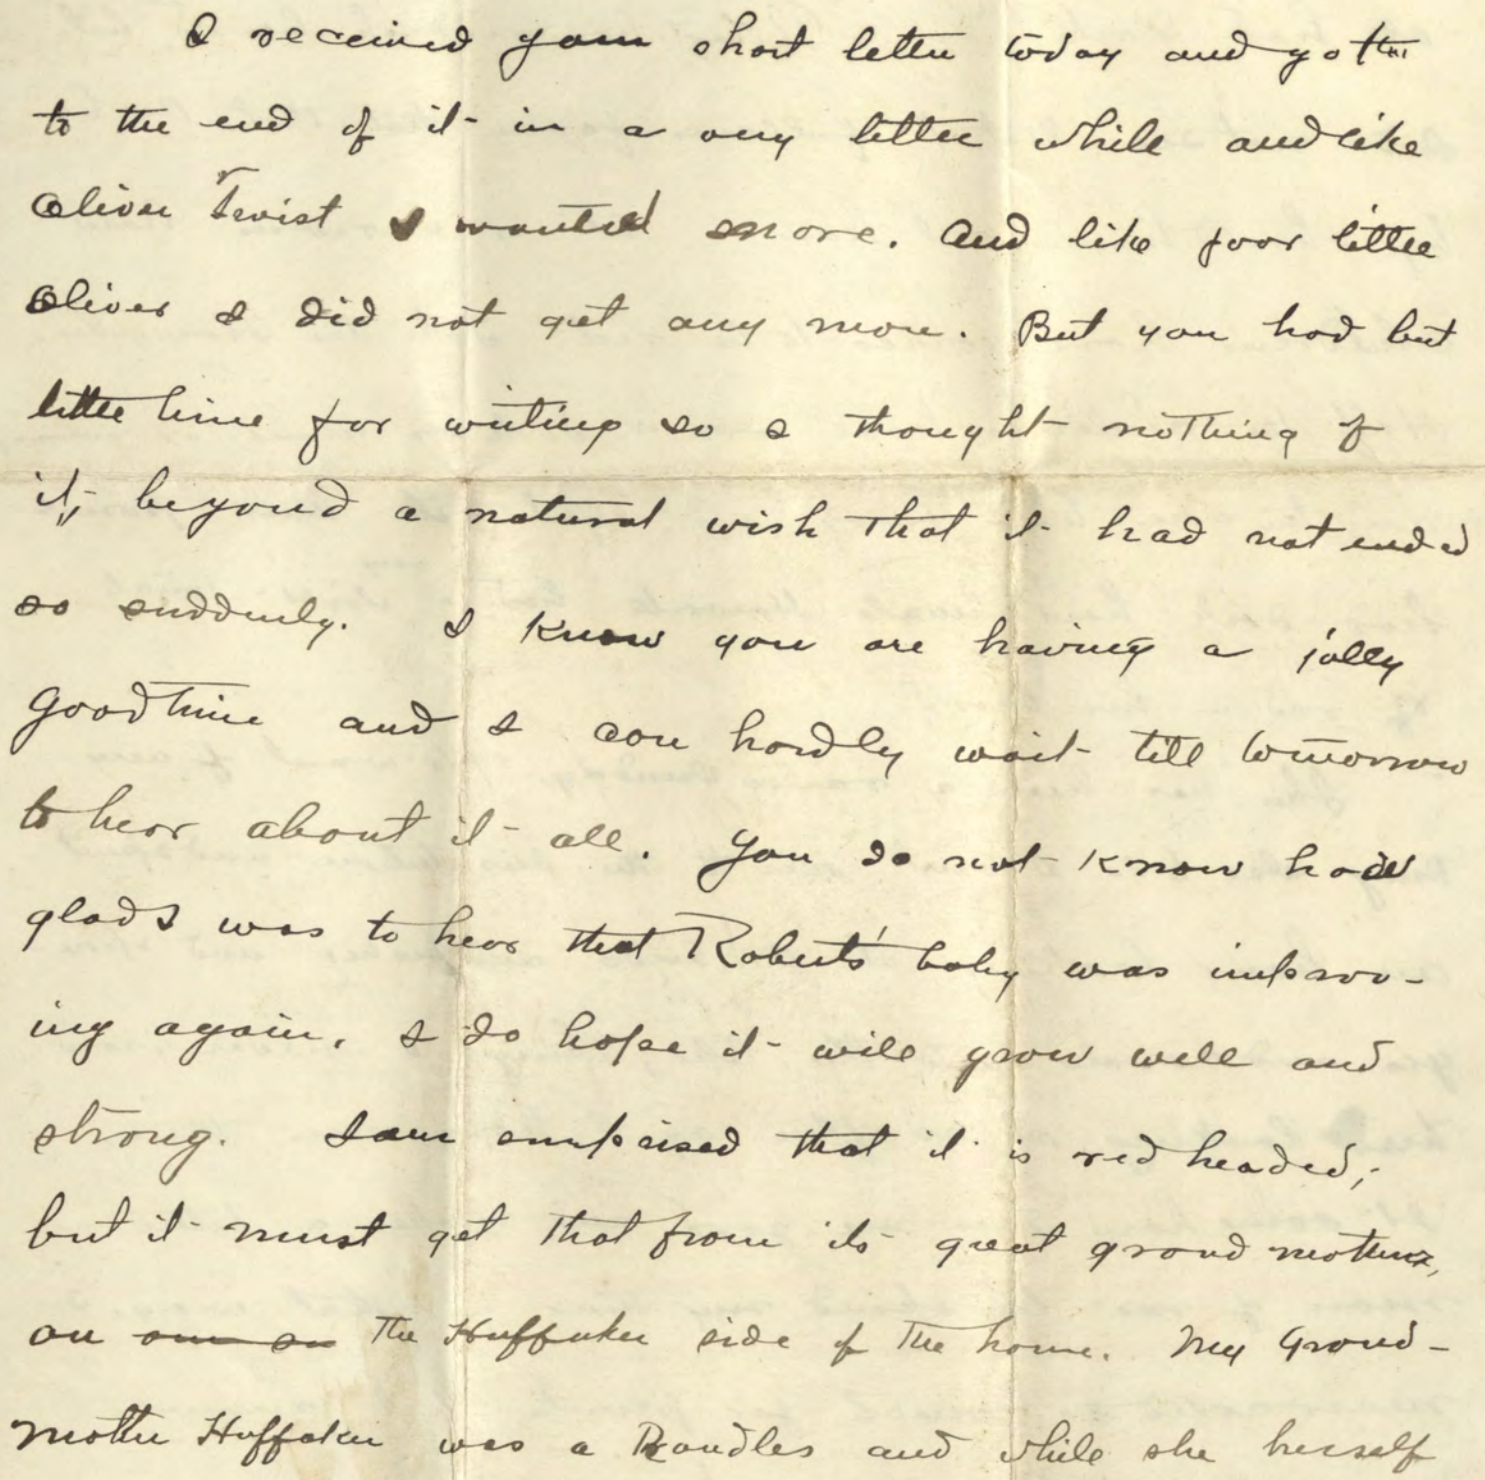 I received your short letter today and got
to the end of it in a very little while and like
Oliver Twist I wanted more. And like poor little
Oliver I did not get any more. But you had but
little time for writing so I thought nothing of
it, beyond a natural wish that it had not ended
so suddenly. I know you are having a jolly
good time and I can hardly wait till tomorrow
to hear about it all. You do not know how
glad I was to hear that Robert's baby was improv-
ing again. I do hope it will grow well and
strong. I am surprised that it is red headed;
but it must get that from its great grand mother,
on the Huffaker side of the house. My Grand-
mother Huffaker was a Randles and while she herself